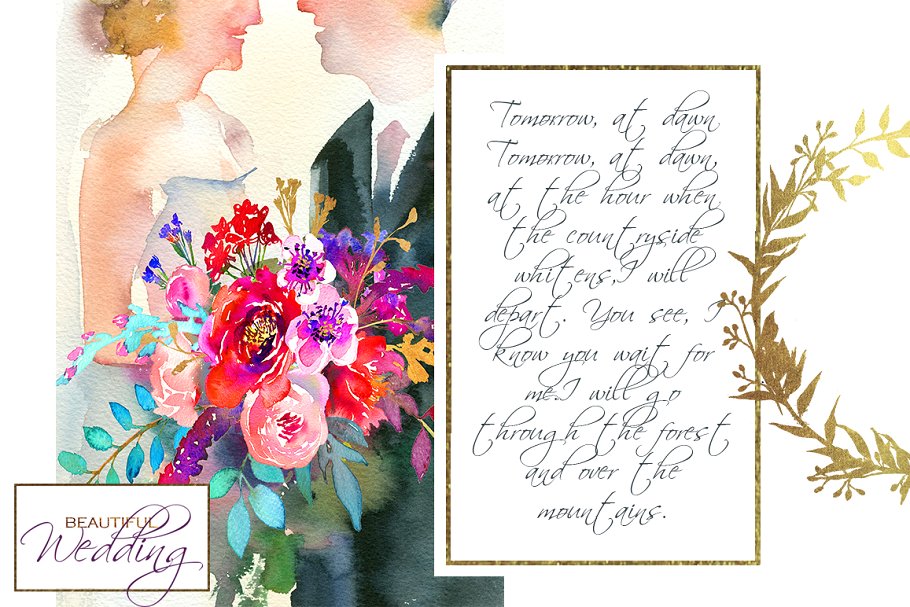 Tomorrow, at dawn
Tomorrow, at dawn,
at the hour when
the countryside
whitens,I will
depart. You see, I
know you wait for
me.I will go
through the forest
and over the
mountains.
BEAUTIFUL
Wedding